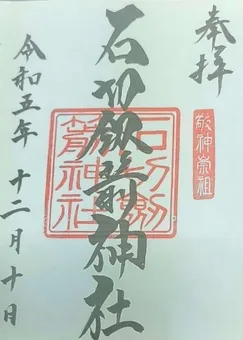 奉拝
敬神崇祖
石切劔箭神社
石切劔箭神社
令和五年 十二月十日